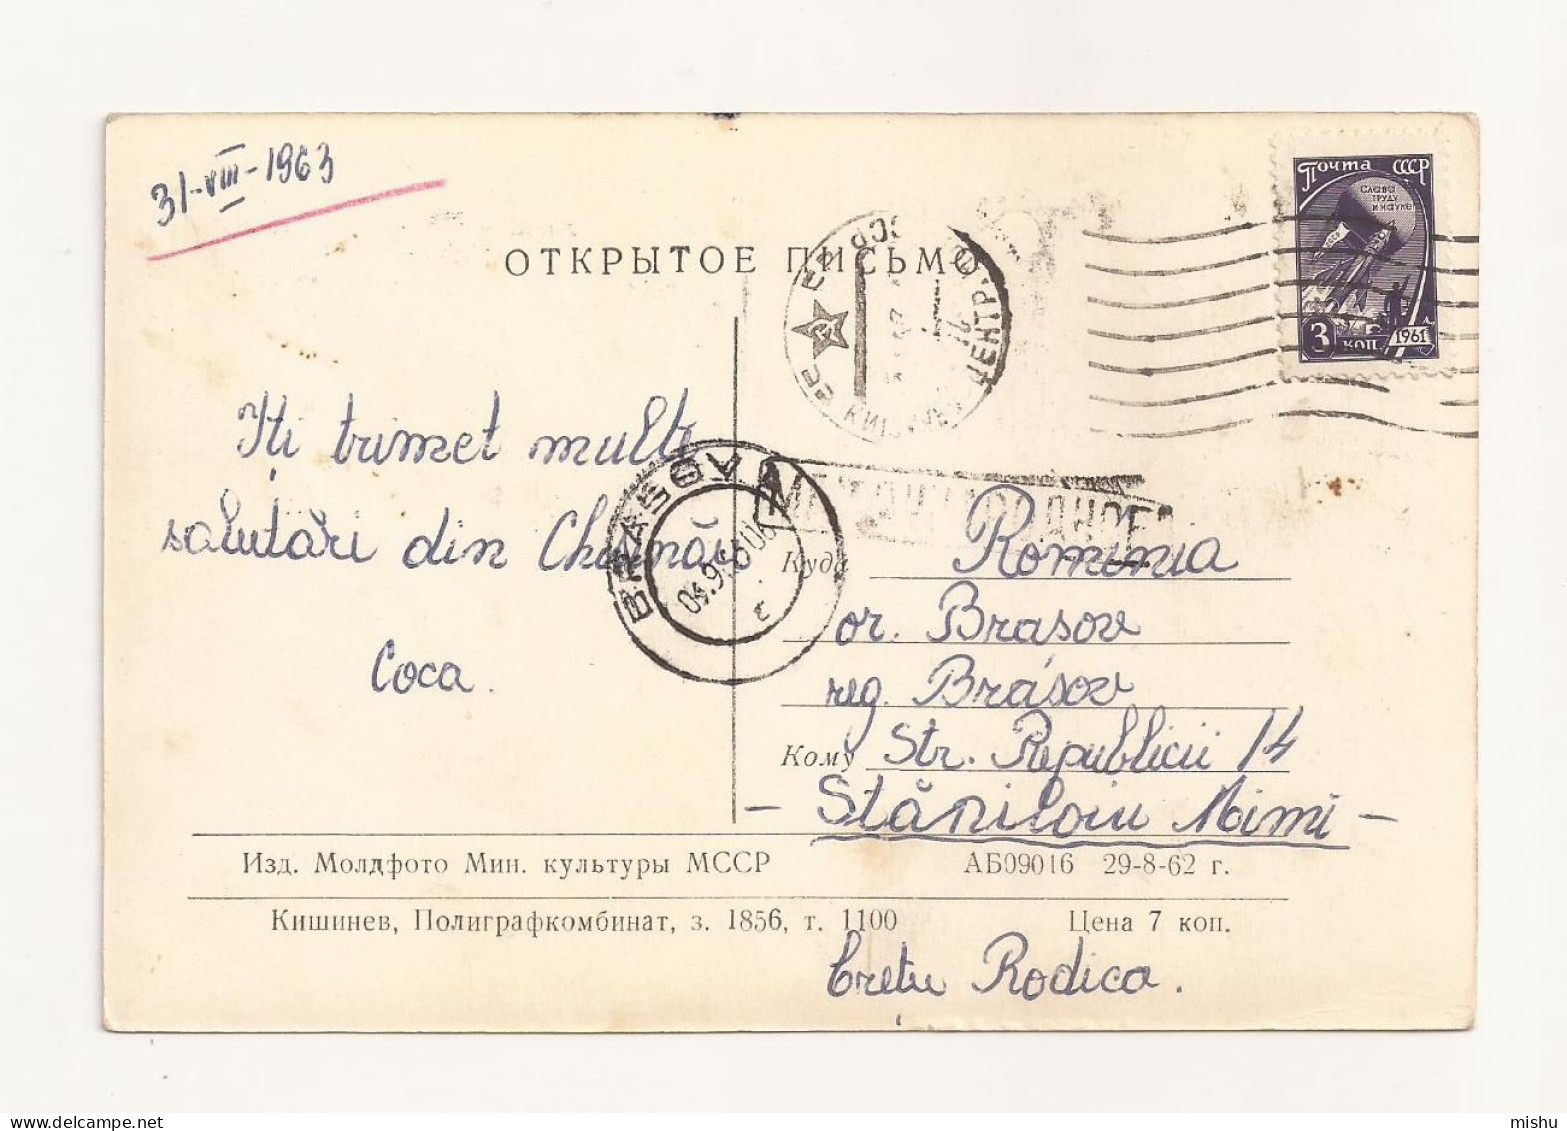 31-VIII-1963
Почта СССР
Слава
труду
и науке
3 коп. 1961
ОТКРЫТОЕ ПИСЬМО
МЕЖДУНАРОДНОЕ
BRASOV
Iti trimet multe
salutări din Chisinău
Coca.
Куда Rominia
or. Brasov
reg. Brásov
Кому Str. Republicii 14
- Stăniloiu Mimi -
Изд. Молдфото Мин. культуры МССР АБ09016 29-8-62 г.
Кишинев, Полиграфкомбинат, з. 1856, т. 1100 Цена 7 коп.
Cretu Rodica.
mishu